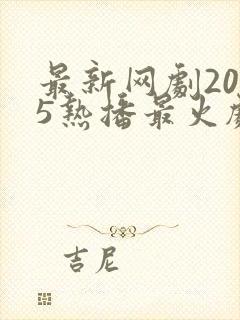 最新网劇20
5热播最火
吉尼